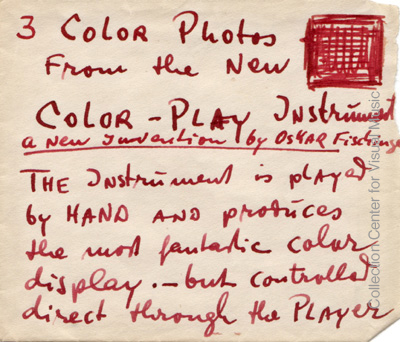 3 Color Photos
From the New
Color-Play Instrument
a new invention by Oskar Fischinger
The Instrument is played
by HAND AND produces
the most fantastic color
display.—but controlled
direct through the Player
Collection Center for Visual Music